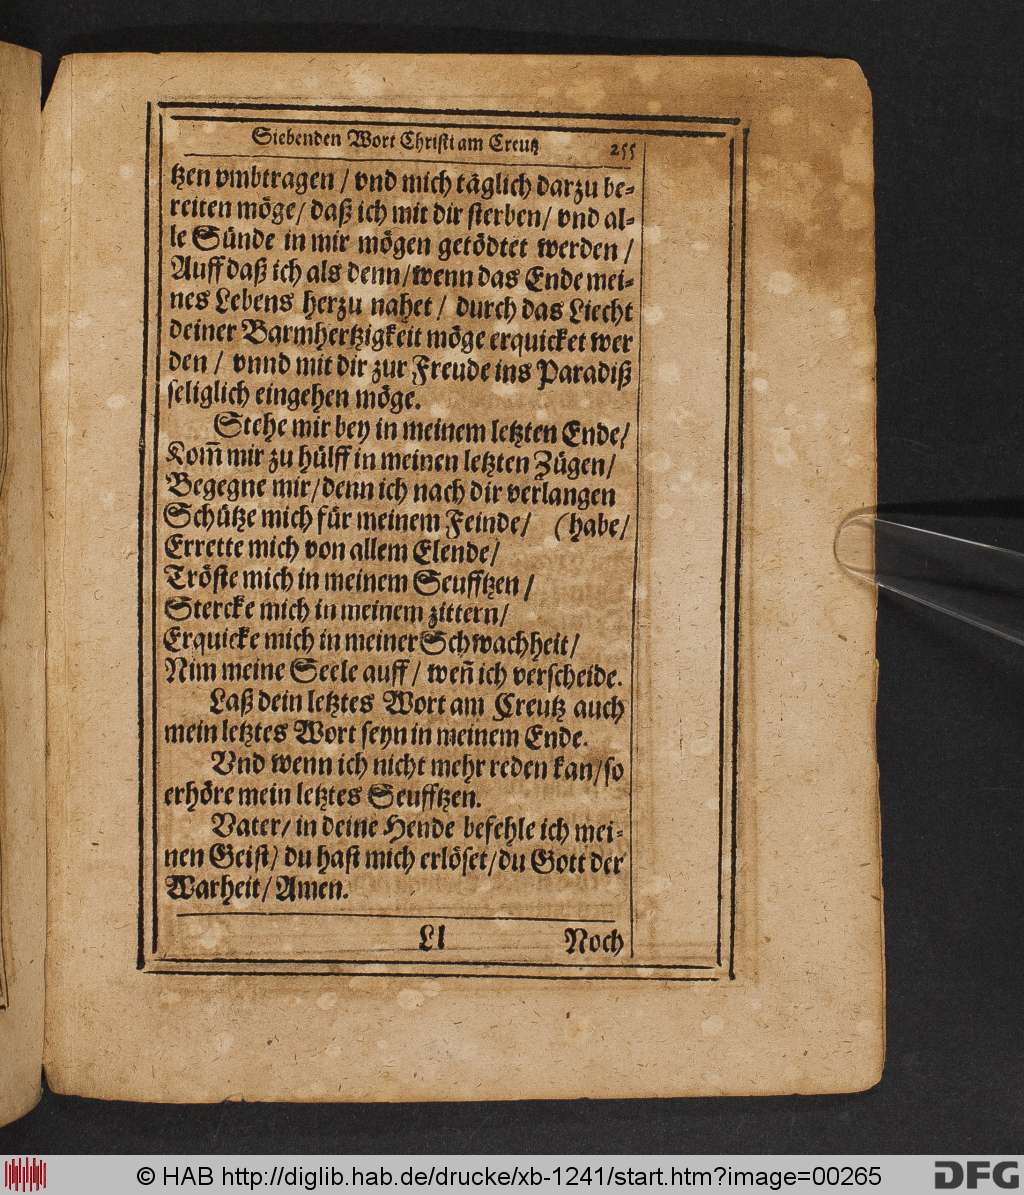 Siebenden Wort Christi am Creutz 255
tzen vmbtragen / vnd mich täglich darzu be⸗
reiten möge / daß ich mit dir sterben / vnd al⸗
le Sünde in mir mögen getödtet werden /
Auff daß ich als denn / wenn das Ende mei⸗
nes Lebens herzu nahet / durch das Liecht
deiner Barmhertzigkeit möge erquicket wer
den / vnnd mit dir zur Freude ins Paradiß
seliglich eingehen möge.
Stehe mir bey in meinem letzten Ende /
Kom̃ mir zu hülff in meinen letzten Zügen /
Begegne mir / denn ich nach dir verlangen
Schütze mich für meinem Feinde / (habe /
Errette mich von allem Elende /
Tröste mich in meinem Seufftzen /
Stercke mich in meinem zittern /
Erquicke mich in meiner Schwachheit /
Nim meine Seele auff / weñ ich verscheide.
Laß dein letztes Wort am Creutz auch
mein letztes Wort seyn in meinem Ende.
Vnd wenn ich nicht mehr reden kan / so
erhöre mein letztes Seufftzen.
Vater / in deine Hende befehle ich mei⸗
nen Geist / du hast mich erlöset / du Gott der
Warheit / Amen.
Ll Noch
© HAB http://diglib.hab.de/drucke/xb-1241/start.htm?image=00265 DFG